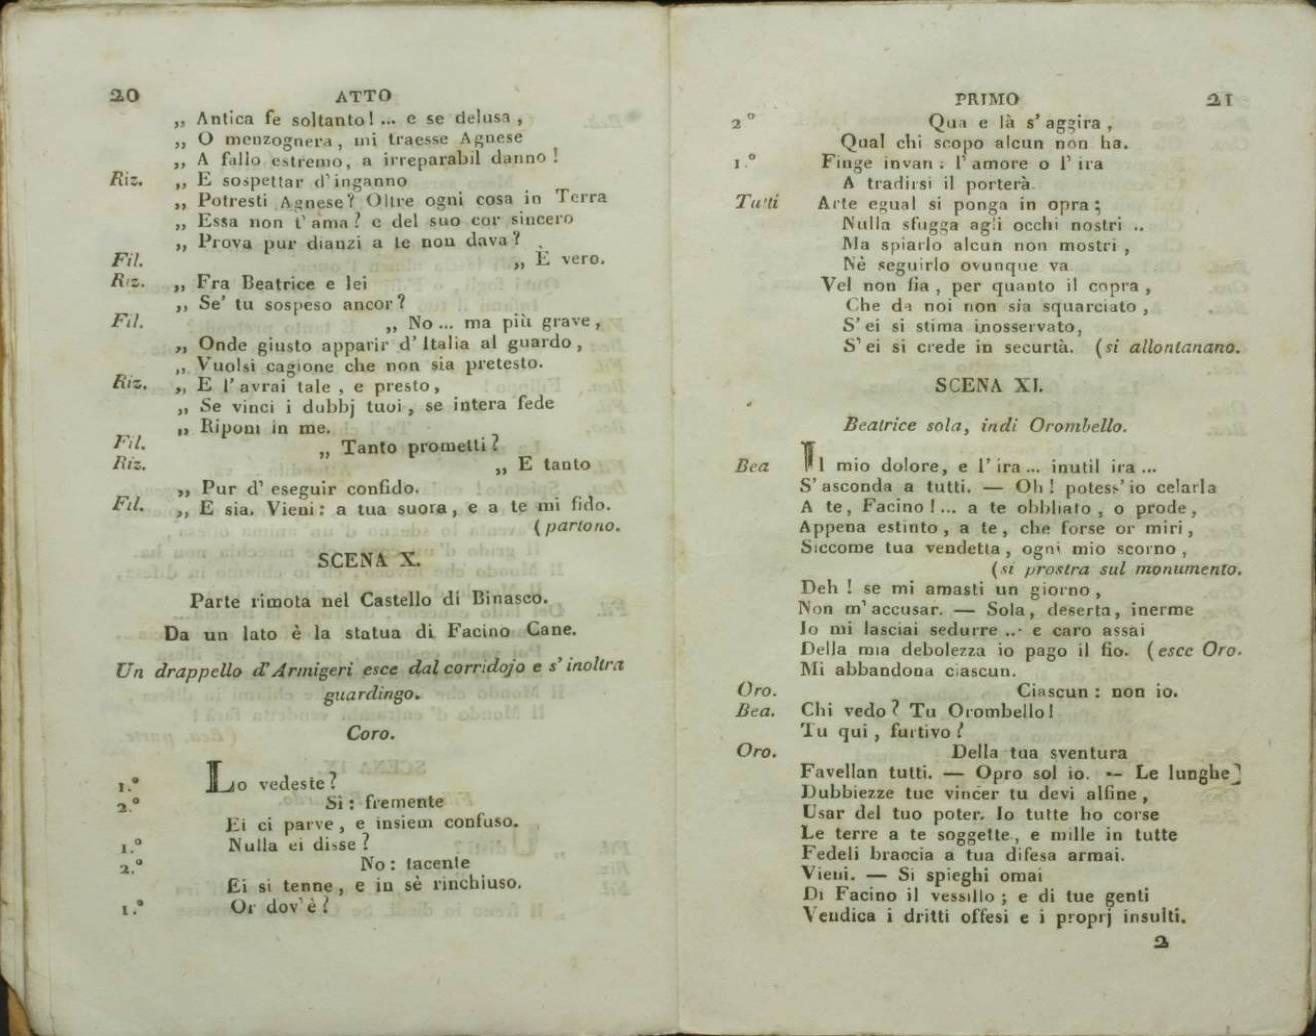 20 ATTO
„ Antica fe soltanto! ... e se delusa ,
„ O menzognera, mi traesse Agnese
„ A fallo estremo, a irreparabil danno !
Riz. „ E sospettar d' inganno
„ Potresti Agnese? Oltre ogni cosa in Terra
„ Essa non t' ama? e del suo cor sincero
„ Prova pur dianzi a te non dava?
Fil. „ È vero.
Riz. „ Fra Beatrice e lei
„ Se' tu sospeso ancor?
Fil. „ No ... ma più grave,
„ Onde giusto apparir d' Italia al guardo ,
„ Vuolsi cagione che non sia pretesto.
Riz. „ E l' avrai tale , e presto,
„ Se vinci i dubbj tuoi, se intera fede
„ Riponi in me.
Fil. „ Tanto prometti?
Riz. „ E tanto
„ Pur d' eseguir confido.
Fil. „ E sia. Vieni: a tua suora, e a te mi fido.
(partono.
SCENA X.
Parte rimota nel Castello di Binasco.
Da un lato è la statua di Facino Cane.
Un drappello d' Armigeri esce dal corridojo e s' inoltra
guardingo.
Coro.
1.° Lo vedeste?
2.° Sì: fremente
Ei ci parve, e insiem confuso.
1.° Nulla ei disse?
2.° No: tacente
Ei si tenne, e in sè rinchiuso.
1.° Or dov' è?
PRIMO 21
2° Qua e là s' aggira ,
Qual chi scopo alcun non ha.
1.° Finge invan: l' amore o l' ira
A tradirsi il porterà.
Tutti Arte egual si ponga in opra;
Nulla sfugga agli occhi nostri ..
Ma spiarlo alcun non mostri ,
Nè seguirlo ovunque va
Vel non fia , per quanto il copra ,
Che da noi non sia squarciato ,
S' ei si stima inosservato,
S' ei si crede in securtà. (si allontanano.
SCENA XI.
Beatrice sola, indi Orombello.
Bea Il mio dolore, e l' ira ... inutil ira ...
S' asconda a tutti. — Oh! potess' io celarla
A te, Facino! ... a te obbliato, o prode,
Appena estinto, a te, che forse or miri,
Siccome tua vendetta, ogni mio scorno ,
(si prostra sul monumento.
Deh ! se mi amasti un giorno ,
Non m' accusar. — Sola, deserta, inerme
Io mi lasciai sedurre ... e caro assai
Della mia debolezza io pago il fio. (esce Oro.
Mi abbandona ciascun.
Oro. Ciascun: non io.
Bea. Chi vedo? Tu Orombello!
Tu qui, furtivo?
Oro. Della tua sventura
Favellan tutti. — Opro sol io. — Le lunghe
Dubbiezze tue vincer tu devi alfine ,
Usar del tuo poter. Io tutte ho corse
Le terre a te soggette, e mille in tutte
Fedeli braccia a tua difesa armai.
Vieni. — Si spieghi omai
Di Facino il vessillo; e di tue genti
Vendica i dritti offesi e i proprj insulti.
2